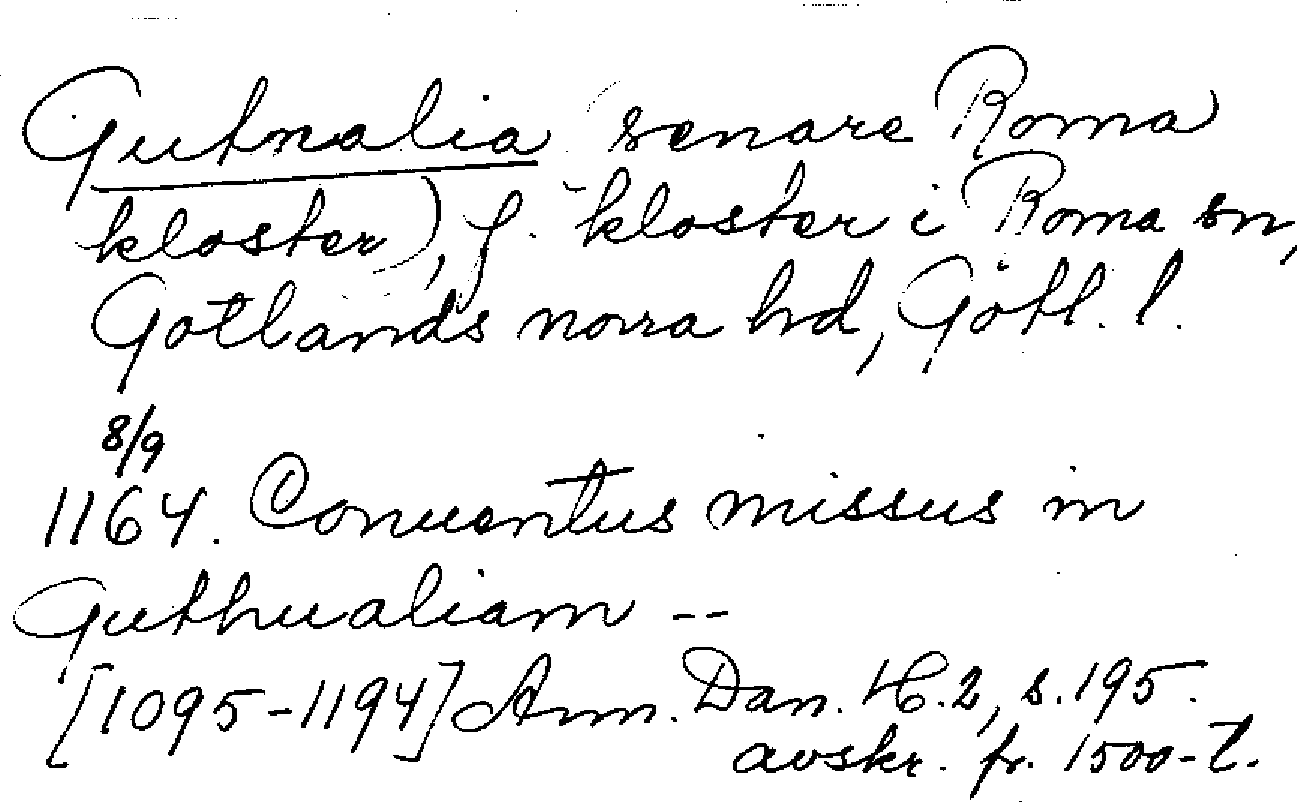 Gutnalia (senare Roma
kloster), f. kloster i Roma sn,
Gotlands norra hd, Gotl. l.
8/9
1164. Conuentus missus in
Guthualiam --
[1095-1194] Ann. Dan. H.2, s.195.
avskr. fr. 1500-t.